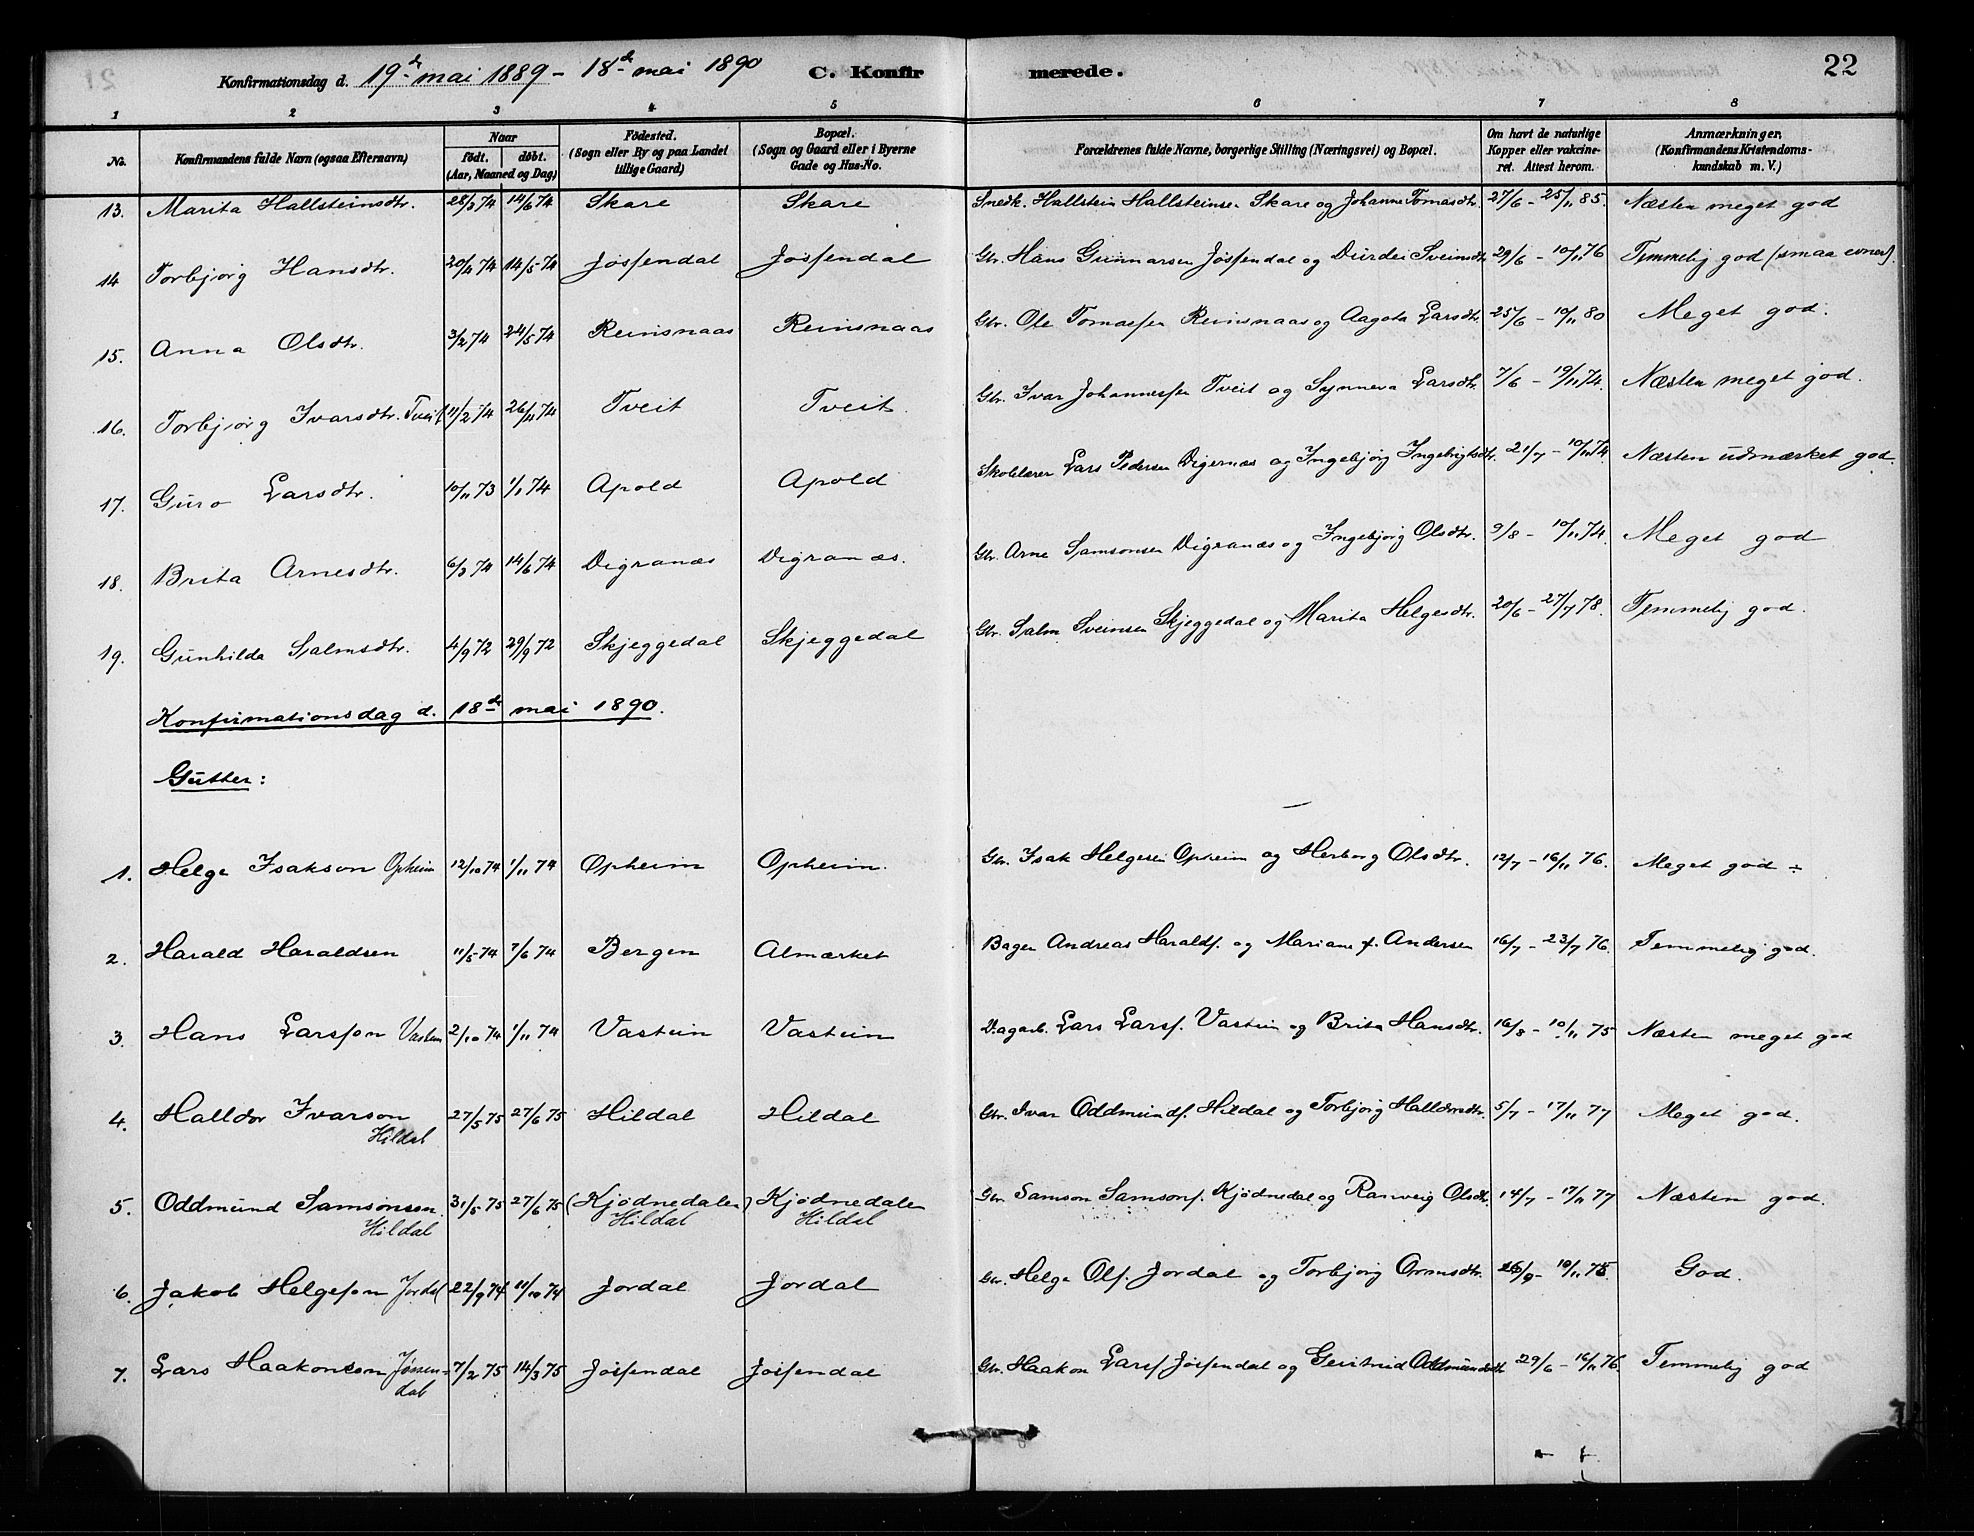 Konfirmationsdag d. 19de mai 1889 – 18de mai 1890 C. Konfirmerede. 22
1 2 3 4 5 6 7 8
No. Konfirmandens fulde Navn (ogsaa Efternavn) Naar født. døbt. (Aar, Maaned og Dag) Fødested. (Sogn eller By og paa Landet tillige Gaard) Bopæl. (Sogn og Gaard eller i Byerne Gade og Hus-No. Forældrenes fulde Navne, borgerlige Stilling (Næringsvei) og Bopæl. Om havt de naturlige Kopper eller vakcineret. Attest herom. Anmærkninger. (Konfirmandens Kristendomskundskab m. V.)
13. Marita Hallsteinsdtr. 28/3 74 14/6 74 Skare Skare Snedk. Hallstein Hallsteinsen Skare og Johanne Tomasdtr. 27/6 – 25/11 85. Næsten meget god
14 Torbjørg Hansdtr. 20/4 74 14/5 74 Jøsfendal Jøsfendal Gbr. Hans Gunnarsen Jøsfendal og Durdei Sveinsdtr. 29/6 – 10/11 76 Temmelig god (smaa evner).
15. Anna Olsdtr. 3/2 74 24/5 74 Reinsnaas Reinsnaas Gbr. Ole Tomassen Reinsnaas og Aagota Larsdtr. 25/6 – 10/11 80 Meget god.
16. Torbjørg Ivarsdtr. Tveit 11/2 74 26/4 74 Tveit Tveit. Gbr. Ivar Johannessen Tveit og Synneva Larsdtr. 7/6 – 19/11 74. Næsten meget god.
17. Guro Larsdtr. 10/11 73 1/1 74 Apold Apold Skolelærer Lars Pedersen Digernæs og Ingebjørg Ingebrigtsdtr. 21/7 – 10/11 74. Næsten udmærket god.
18. Brita Arnesdtr. 6/3 74 14/6 74 Digranæs Digranæs. Gbr. Arne Samsonsen Digranæs og Ingebjørg Olsdtr. 9/8 – 10/11 74. Meget god
19. Gunhilda Salmsdtr. 4/9 72 29/9 72 Skjeggedal Skjeggedal Gbr. Salm Sveinsen Skjeggedal og Marita Helgesdtr. 20/6 – 27/7 78. Temmelig god.
Konfirmationsdag d. 18de mai 1890.
Gutter:
1. Helge Isakson Opheim 12/10 74 1/11 74 Opheim Opheim. Gbr. Isak Helgesen Opheim og Herborg Olsdtr. 12/7 – 16/11 76. Meget god ÷
2. Harald Haraldsen 11/5 74 7/6 74 Bergen Almærket Bager Andreas Haralds. og Mariane f. Andersen 16/7 – 23/7 76. Temmelig god.
3. Hans Larsson Vastun 2/10 74 1/11 74 Vastein Vastein Dagarb. Lars Larss. Vastein og Brita Hansdtr. 16/8 – 10/11 75 Næsten meget god
4. Halldor Ivarson Hildal 27/5 75 27/6 75 Hildal Hildal Gbr. Ivar Oddmunds. Hildal og Torbjørg Halldorsdtr. 5/7 – 17/11 77 Meget god.
5. Oddmund Samsonson Hildal 31/5 75 27/6 75 (Kjødnedalen) Hildal Kjødnedalen Hildal Gbr. Samson Samsons. Kjødnedal og Ranveig Olsdtr. 14/7 – 17/11 77 Næsten god.
6. Jakob Helgeson Jordal 22/9 74 11/10 74 Jordal Jordal Gbr. Helge Ols. Jordal og Torbjørg Ormsdtr. 26/9 – 10/11 75 God.
7. Lars Haakonson Jøssendal 7/2 75 14/3 75 Jøsfendal Jøsfendal Gbr. Haakon Larss. Jøsfendal og Geirtrud Oddmundsdtr. 29/6 – 16/11 76. Temmelig god